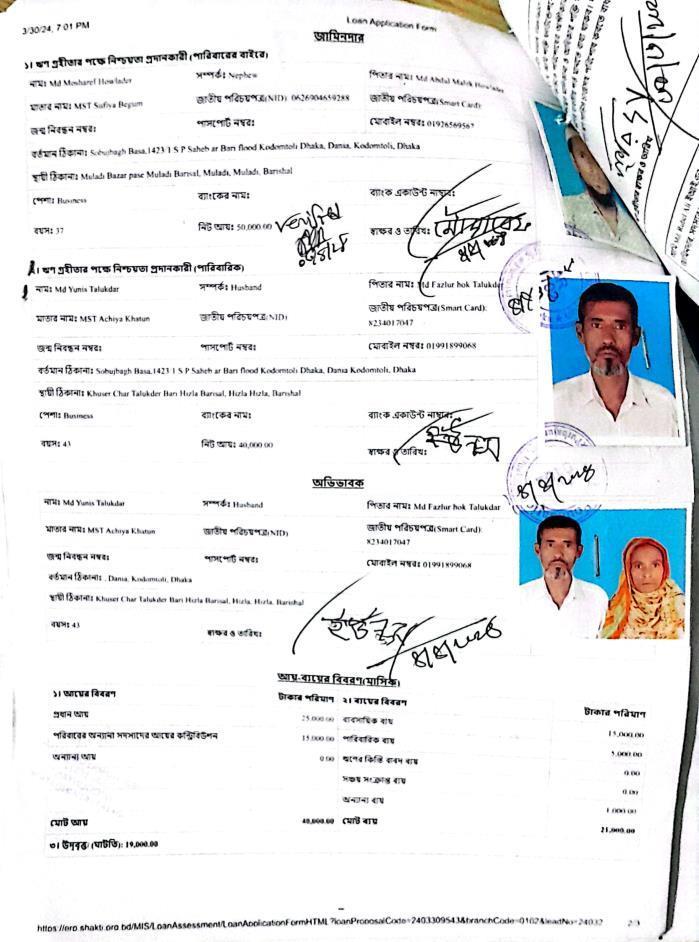 3/30/24, 7:01 PM Loan Application Form
জামিনদার
১। ঋণ গ্রহীতার পক্ষে নিশ্চয়তা প্রদানকারী (পারিবারের বাইরে)
নাম: Md Mosharef Howlader সম্পর্ক: Nephew পিতার নাম: Md Abdul Malek Howlader
মাতার নাম: MST Sufiya Begum জাতীয় পরিচয়পত্র(NID): 0626904659288 জাতীয় পরিচয়পত্র(Smart Card):
জন্ম নিবন্ধন নম্বর: পাসপোর্ট নম্বর: মোবাইল নম্বর: 01926569567
বর্তমান ঠিকানা: Sobujbagh Basa,1423/1 S P Saheb ar Bari flood Kodomtoli Dhaka, Dania, Kodomtoli, Dhaka
স্থায়ী ঠিকানা: Muladi Bazar pase Muladi Barisal, Muladi, Muladi, Barishal
পেশা: Business ব্যাংকের নাম: ব্যাংক একাউন্ট নাম্বার:
বয়স: 37 নিট আয়: 50,000.00 স্বাক্ষর ও তারিখ:
১। ঋণ গ্রহীতার পক্ষে নিশ্চয়তা প্রদানকারী (পারিবারিক)
নাম: Md Yunis Talukdar সম্পর্ক: Husband পিতার নাম: Md Fazlur hok Talukdar
মাতার নাম: MST Achiya Khatun জাতীয় পরিচয়পত্র(NID) জাতীয় পরিচয়পত্র(Smart Card):
8234017047
জন্ম নিবন্ধন নম্বর: পাসপোর্ট নম্বর: মোবাইল নম্বর: 01991899068
বর্তমান ঠিকানা: Sobujbagh Basa,1423/1 S P Saheb ar Bari flood Kodomtoli Dhaka, Dania Kodomtoli, Dhaka
স্থায়ী ঠিকানা: Khuser Char Talukder Bari Hizla Barisal, Hizla Hizla, Barishal
পেশা: Business ব্যাংকের নাম: ব্যাংক একাউন্ট নাম্বার:
বয়স: 43 নিট আয়: 40,000.00 স্বাক্ষর ও তারিখ:
অভিভাবক
নাম: Md Yunis Talukdar সম্পর্ক: Husband পিতার নাম: Md Fazlur hok Talukdar
মাতার নাম: MST Achiya Khatun জাতীয় পরিচয়পত্র(NID) জাতীয় পরিচয়পত্র(Smart Card):
8234017047
জন্ম নিবন্ধন নম্বর: পাসপোর্ট নম্বর: মোবাইল নম্বর: 01991899068
বর্তমান ঠিকানা: , Dania, Kodomtoli, Dhaka
স্থায়ী ঠিকানা: Khuser Char Talukder Bari Hizla Barisal, Hizla, Hizla, Barishal
বয়স: 43 স্বাক্ষর ও তারিখ:
আয়-ব্যয়ের বিবরণ(মাসিক)
১। আয়ের বিবরণ টাকার পরিমাণ ২। ব্যয়ের বিবরণ টাকার পরিমাণ
প্রধান আয় 25,000.00 ব্যবসায়িক ব্যয় 15,000.00
পরিবারের অন্যান্য সদস্যদের আয়ের কন্ট্রিবিউশন 15,000.00 পারিবারিক ব্যয় 5,000.00
অন্যান্য আয় 0.00 ঋণের কিস্তি বাবদ ব্যয় 0.00
সঞ্চয় সংক্রান্ত ব্যয় 0.00
অন্যান্য ব্যয় 1,000.00
মোট আয় 40,000.00 মোট ব্যয় 21,000.00
৩। উদ্বৃত্ত/ (ঘাটতি): 19,000.00
https://erp.shakti.org.bd/MIS/LoanAssessment/LoanApplicationFormHTML?loanProposalCode=2403309543&branchCode=0102&leadNo=24032 2/3